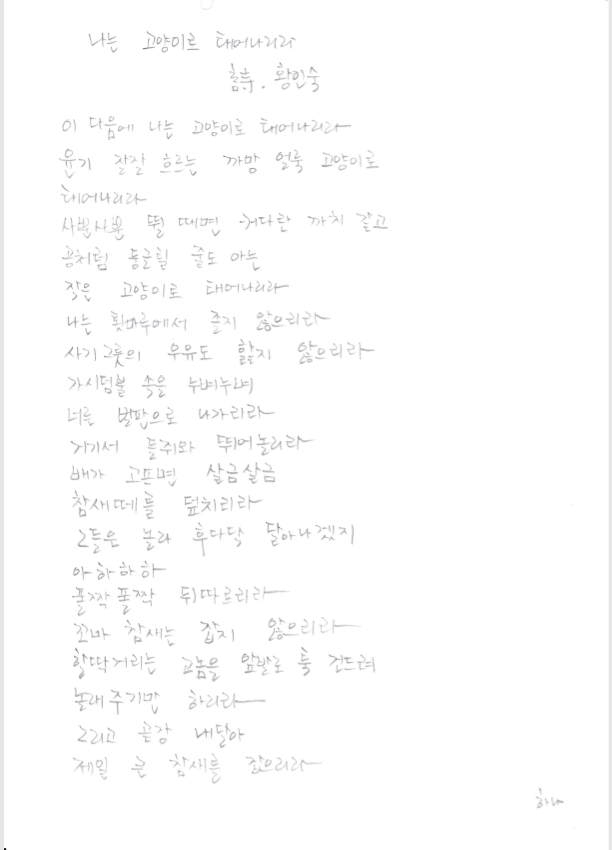 나는 고양이로 태어나리라
황인숙
이 다음에 나는 고양이로 태어나리라
윤기 잘잘 흐르는 까망 얼룩 고양이로
태어나리라
사뿐사뿐 뛸 때면 커다란 까치 같고
공처럼 둥글릴 줄도 아는
작은 고양이로 태어나리라
나는 툇마루에서 졸지 않으리라
사기그릇의 우유도 핥지 않으리라
가시덤불 속을 누벼누벼
너른 벌판으로 나가리라
거기서 들쥐와 뛰어놀리라
배가 고프면 살금살금
참새떼를 덮치리라
그들은 놀라 후다닥 달아나겠지
아하하하
폴짝폴짝 뒤따르리라
꼬마 참새는 잡지 않으리라
할딱거리는 고놈을 앞발로 툭 건드려
놀래주기만 하리라
그리고 곧장 내달아
제일 큰 참새를 잡으리라